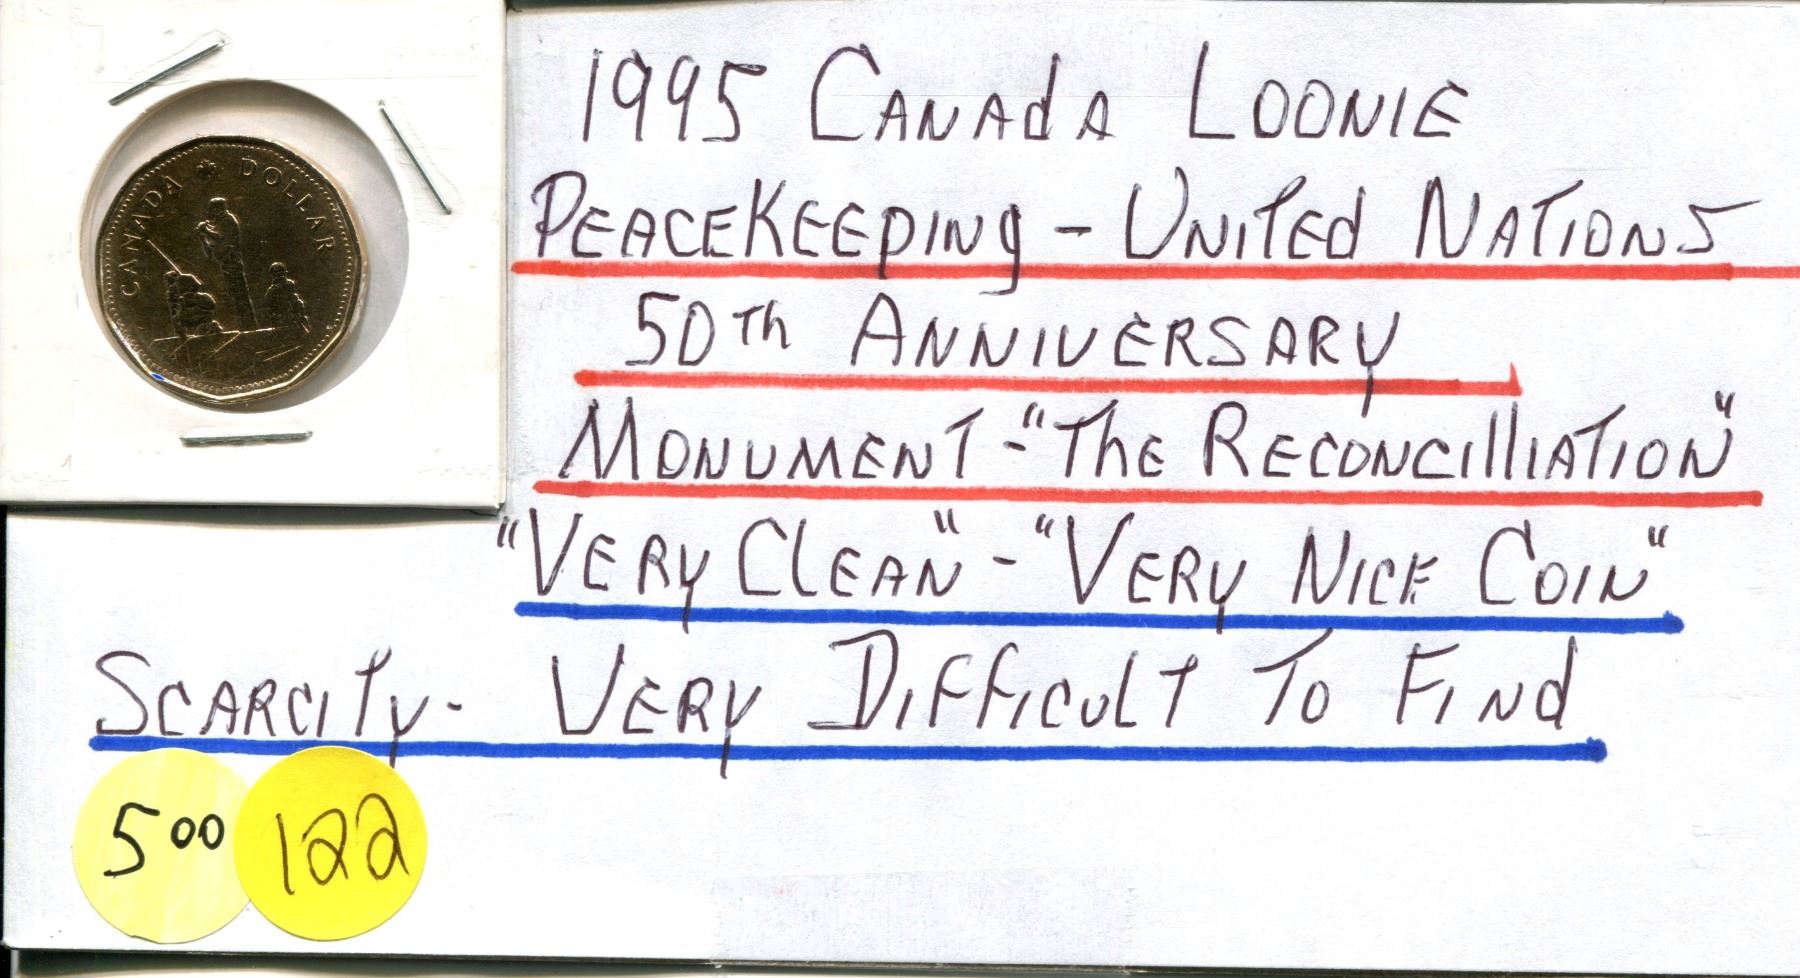 CANADA DOLLAR
1995 CANAdA LOONIE
PEACEKEEPING - UNITEd NATIONS
50Th ANNIVERSARY
MONUMENT - "ThE RECONCIlliATION"
"VERY ClEAN" - "VERY NICE COIN"
SCARCITY - VERY DIFFICULT TO FINd
5 00
122